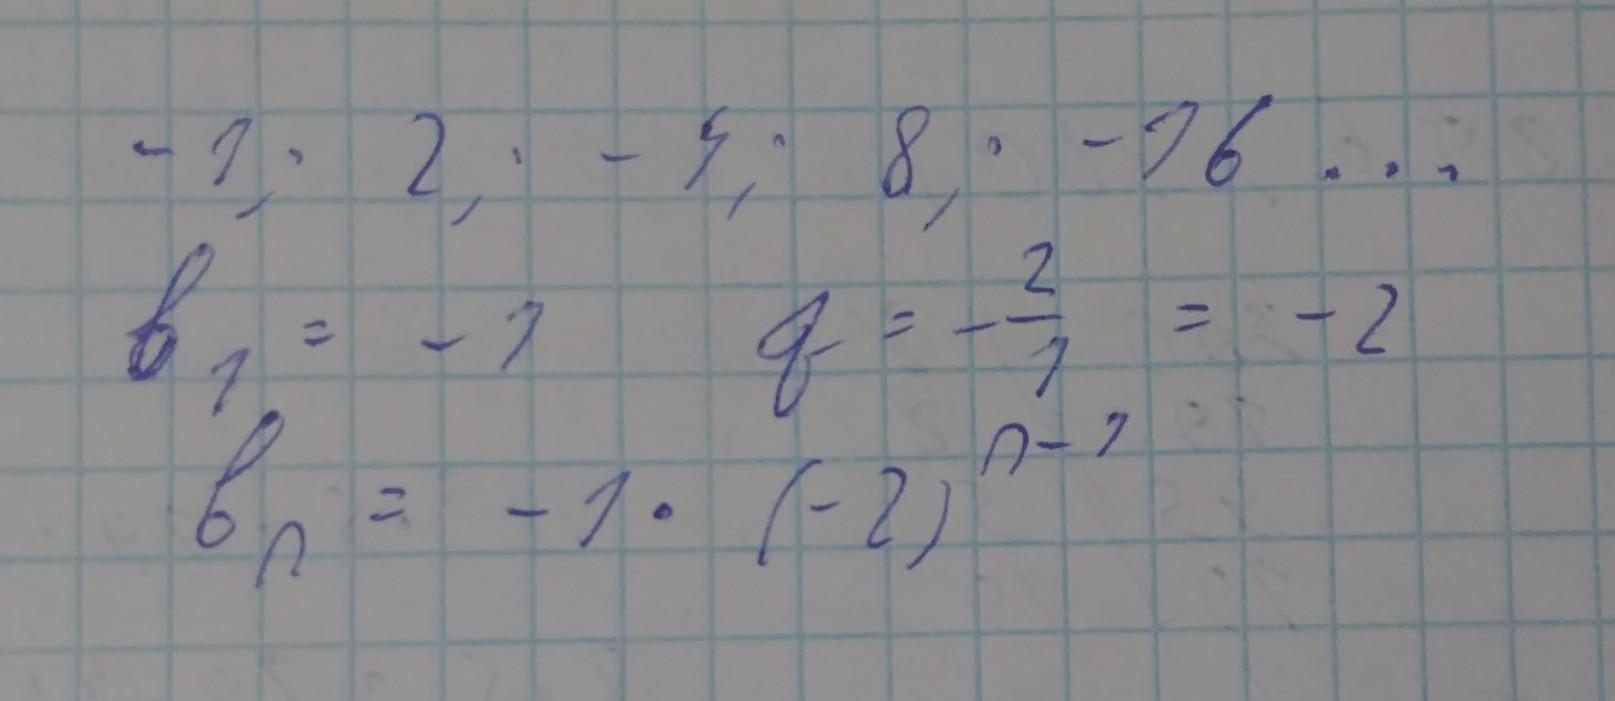 -1; 2; -4; 8; -16 ...
b₁ = -1 q = -2/1 = -2
bₙ = -1 · (-2)ⁿ⁻¹